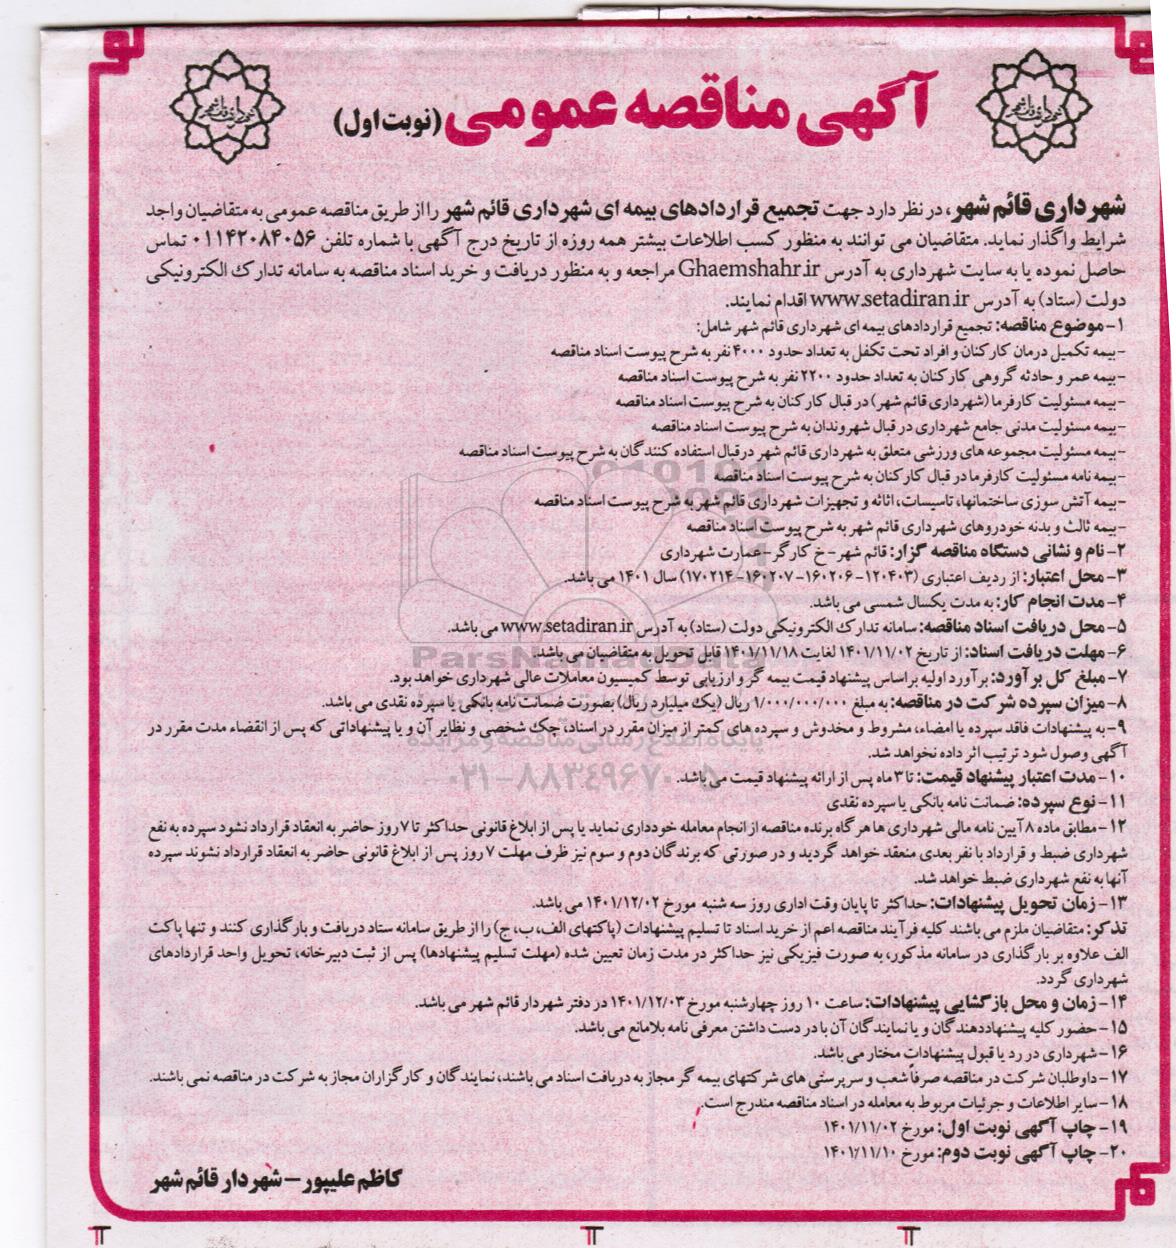 آگهی مناقصه عمومی (نوبت اول)
شهرداری قائم شهر، در نظر دارد جهت تجمیع قراردادهای بیمه ای شهرداری قائم شهر را از طریق مناقصه عمومی به متقاضیان واجد
شرایط واگذار نماید. متقاضیان می توانند به منظور کسب اطلاعات بیشتر همه روزه از تاریخ درج آگهی با شماره تلفن ۰۱۱۴۲۰۸۴۰۵۶ تماس
حاصل نموده یا به سایت شهرداری به آدرس Ghaemshahr.ir مراجعه و به منظور دریافت و خرید اسناد مناقصه به سامانه تدارک الکترونیکی
دولت (ستاد) به آدرس www.setadiran.ir اقدام نمایند.
۱- موضوع مناقصه: تجمیع قراردادهای بیمه ای شهرداری قائم شهر شامل:
-بیمه تکمیل درمان کارکنان و افراد تحت تکفل به تعداد حدود ۴۰۰۰ نفر به شرح پیوست اسناد مناقصه
-بیمه عمر و حادثه گروهی کارکنان به تعداد حدود ۲۲۰۰ نفر به شرح پیوست اسناد مناقصه
-بیمه مسئولیت کارفرما (شهرداری قائم شهر) در قبال کارکنان به شرح پیوست اسناد مناقصه
-بیمه مسئولیت مدنی جامع شهرداری در قبال شهروندان به شرح پیوست اسناد مناقصه
-بیمه مسئولیت مجموعه های ورزشی متعلق به شهرداری قائم شهر درقبال استفاده کنندگان به شرح پیوست اسناد مناقصه
-بیمه نامه مسئولیت کارفرما در قبال کارکنان به شرح پیوست اسناد مناقصه
-بیمه آتش سوزی ساختمانها، تاسیسات، اثاثه و تجهیزات شهرداری قائم شهر به شرح پیوست اسناد مناقصه
-بیمه ثالث و بدنه خودروهای شهرداری قائم شهر به شرح پیوست اسناد مناقصه
۲- نام و نشانی دستگاه مناقصه گزار: قائم شهر-خ کارگر-عمارت شهرداری
۳- محل اعتبار: از ردیف اعتباری (۱۲۰۴۰۳-۱۶۰۲۰۶-۱۶۰۲۰۷-۱۷۰۲۱۴) سال ۱۴۰۱ می باشد.
۴- مدت انجام کار: به مدت یکسال شمسی می باشد.
۵- محل دریافت اسناد مناقصه: سامانه تدارک الکترونیکی دولت (ستاد) به آدرس www.setadiran.ir می باشد.
۶- مهلت دریافت اسناد: از تاریخ ۱۴۰۱/۱۱/۰۲ لغایت ۱۴۰۱/۱۱/۱۸ قابل تحویل به متقاضیان می باشد.
۷- مبلغ کل برآورد: برآورد اولیه براساس پیشنهاد قیمت بیمه گر و ارزیابی توسط کمیسیون معاملات عالی شهرداری خواهد بود.
۸- میزان سپرده شرکت در مناقصه: به مبلغ ۱/۰۰۰/۰۰۰/۰۰۰ ریال (یک میلیارد ریال) بصورت ضمانت نامه بانکی یا سپرده نقدی می باشد.
۹- به پیشنهادات فاقد سپرده یا امضاء، مشروط و مخدوش و سپرده های کمتر از میزان مقرر در اسناد، چک شخصی و نظایر آن و یا پیشنهاداتی که پس از انقضاء مدت مقرر در
آگهی وصول شود ترتیب اثر داده نخواهد شد.
۱۰- مدت اعتبار پیشنهاد قیمت: تا ۳ ماه پس از ارائه پیشنهاد قیمت می باشد.
۱۱- نوع سپرده: ضمانت نامه بانکی یا سپرده نقدی
۱۲- مطابق ماده ۸ آیین نامه مالی شهرداری ها هرگاه برنده مناقصه از انجام معامله خودداری نماید یا پس از ابلاغ قانونی حداکثر تا ۷ روز حاضر به انعقاد قرارداد نشود سپرده به نفع
شهرداری ضبط و قرارداد با نفر بعدی منعقد خواهد گردید و در صورتی که برندگان دوم و سوم نیز ظرف مهلت ۷ روز پس از ابلاغ قانونی حاضر به انعقاد قرارداد نشوند سپرده
آنها به نفع شهرداری ضبط خواهد شد.
۱۳- زمان تحویل پیشنهادات: حداکثر تا پایان وقت اداری روز سه شنبه مورخ ۱۴۰۱/۱۲/۰۲ می باشد.
تذکر: متقاضیان ملزم می باشند کلیه فرآیند مناقصه اعم از خرید اسناد تا تسلیم پیشنهادات (پاکتهای الف، ب، ج) را از طریق سامانه ستاد دریافت و بارگذاری کنند و تنها پاکت
الف علاوه بر بارگذاری در سامانه مذکور، به صورت فیزیکی نیز حداکثر در مدت زمان تعیین شده (مهلت تسلیم پیشنهادها) پس از ثبت دبیرخانه، تحویل واحد قراردادهای
شهرداری گردد.
۱۴- زمان و محل بازگشایی پیشنهادات: ساعت ۱۰ روز چهارشنبه مورخ ۱۴۰۱/۱۲/۰۳ در دفتر شهردار قائم شهر می باشد.
۱۵- حضور کلیه پیشنهاددهندگان و یا نمایندگان آن با در دست داشتن معرفی نامه بلامانع می باشد.
۱۶- شهرداری در رد یا قبول پیشنهادات مختار می باشد.
۱۷- داوطلبان شرکت در مناقصه صرفا شعب و سرپرستی های شرکتهای بیمه گر مجاز به دریافت اسناد می باشند، نمایندگان و کارگزاران مجاز به شرکت در مناقصه نمی باشند.
۱۸- سایر اطلاعات و جزئیات مربوط به معامله در اسناد مناقصه مندرج است.
۱۹- چاپ آگهی نوبت اول: مورخ ۱۴۰۱/۱۱/۰۲
۲۰- چاپ آگهی نوبت دوم: مورخ ۱۴۰۱/۱۱/۱۰
کاظم علیپور – شهردار قائم شهر
ParsNamadData
پایگاه اطلاع رسانی مناقصه و مزایده
۰۲۱-۸۸۳۴۹۶۷۰-۵